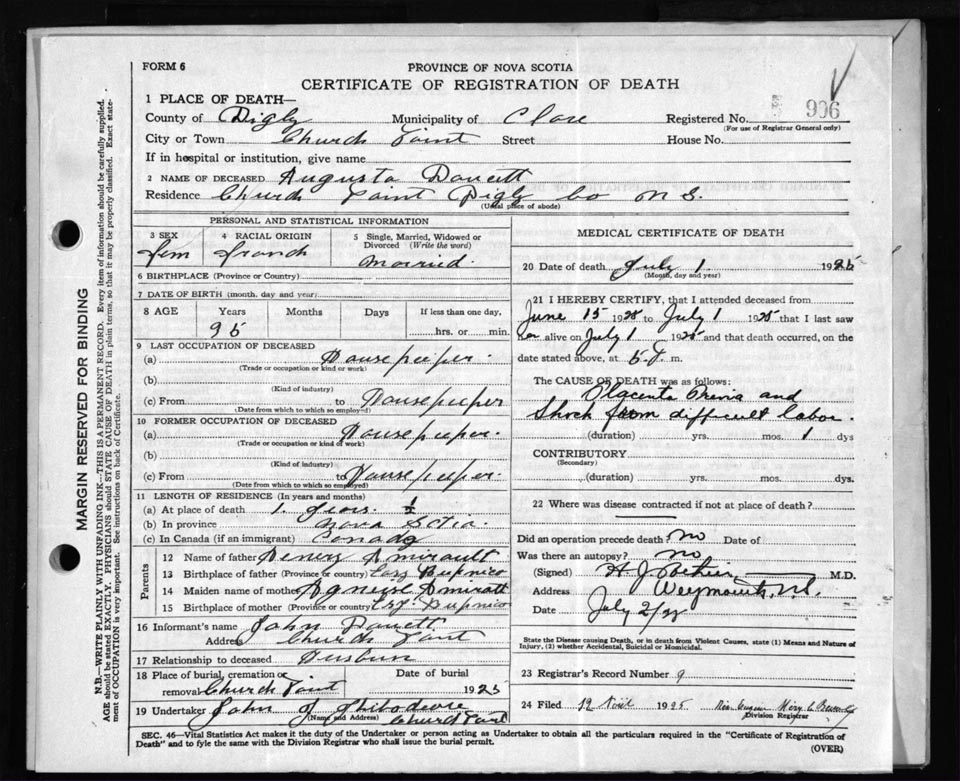 FORM 6
PROVINCE OF NOVA SCOTIA
CERTIFICATE OF REGISTRATION OF DEATH
906
1 PLACE OF DEATH—
County of Digby Municipality of Clare Registered No.
(For use of Registrar General only)
City or Town Church Point Street House No.
If in hospital or institution, give name
2 NAME OF DECEASED Augusta Doucett
Residence Church Point Digby Co N S.
(Usual place of abode)
PERSONAL AND STATISTICAL INFORMATION
3 SEX 4 RACIAL ORIGIN 5 Single, Married, Widowed or Divorced (Write the word)
Fem French Married.
6 BIRTHPLACE (Province or Country)
7 DATE OF BIRTH (month, day and year)
8 AGE Years Months Days If less than one day,
hrs. or min.
9 LAST OCCUPATION OF DECEASED
(a) Housepeeper.
(Trade or occupation or kind or work)
(b)
(Kind of industry)
(c) From to Housepeeper
(Date from which to which so employed)
10 FORMER OCCUPATION OF DECEASED
(a) Housepeeper.
(Trade or occupation or kind of work)
(b)
(Kind of industry)
(c) From to Housepeeper.
(Date from which to which so employed)
11 LENGTH OF RESIDENCE (In years and months)
(a) At place of death 1. years. ½
(b) In province Nova Sctia.
(c) In Canada (if an immigrant) Canada
Parents
12 Name of father Henery Amirault
13 Birthplace of father (Province or country)
14 Maiden name of mother
15 Birthplace of mother (Province or country)
16 Informant's name John Doucett
Address Church Point
17 Relationship to deceased
18 Place of burial, cremation or Date of burial
removal Church Point 1925
19 Undertaker John J
(Name and Address) Church Point
MEDICAL CERTIFICATE OF DEATH
20 Date of death July 1. 1925
(Month, day and year)
21 I HEREBY CERTIFY, that I attended deceased from
June 15 1925 to July 1 1925 that I last saw
her alive on July 1 1925 and that death occurred, on the
date stated above, at m.
The CAUSE OF DEATH was as follows:
Placenta Previa and
Shock from difficult labor.
(duration) yrs. mos. 1 dys
CONTRIBUTORY
(Secondary)
(duration) yrs. mos. dys.
22 Where was disease contracted if not at place of death?
Did an operation precede death? no Date of
Was there an autopsy? no
(Signed) M.D.
Address Weymouth, N.S.
Date July 2/25
State the Disease causing Death, or in death from Violent Causes, state (1) Means and Nature of
Injury, (2) whether Accidental, Suicidal or Homicidal.
23 Registrar's Record Number 9
24 Filed 1925
Division Registrar
SEC. 46—Vital Statistics Act makes it the duty of the Undertaker or person acting as Undertaker to obtain all the particulars required in the "Certificate of Registration of
Death" and to fyle the same with the Division Registrar who shall issue the burial permit.
(OVER)
MARGIN RESERVED FOR BINDING
N.B.—WRITE PLAINLY WITH UNFADING INK—THIS IS A PERMANENT RECORD. Every item of information should be carefully supplied.
AGE should be stated EXACTLY. PHYSICIANS should STATE CAUSE OF DEATH in plain terms, so that it may be properly classified. Exact state-
ment of OCCUPATION is very important. See instructions on back of Certificate.